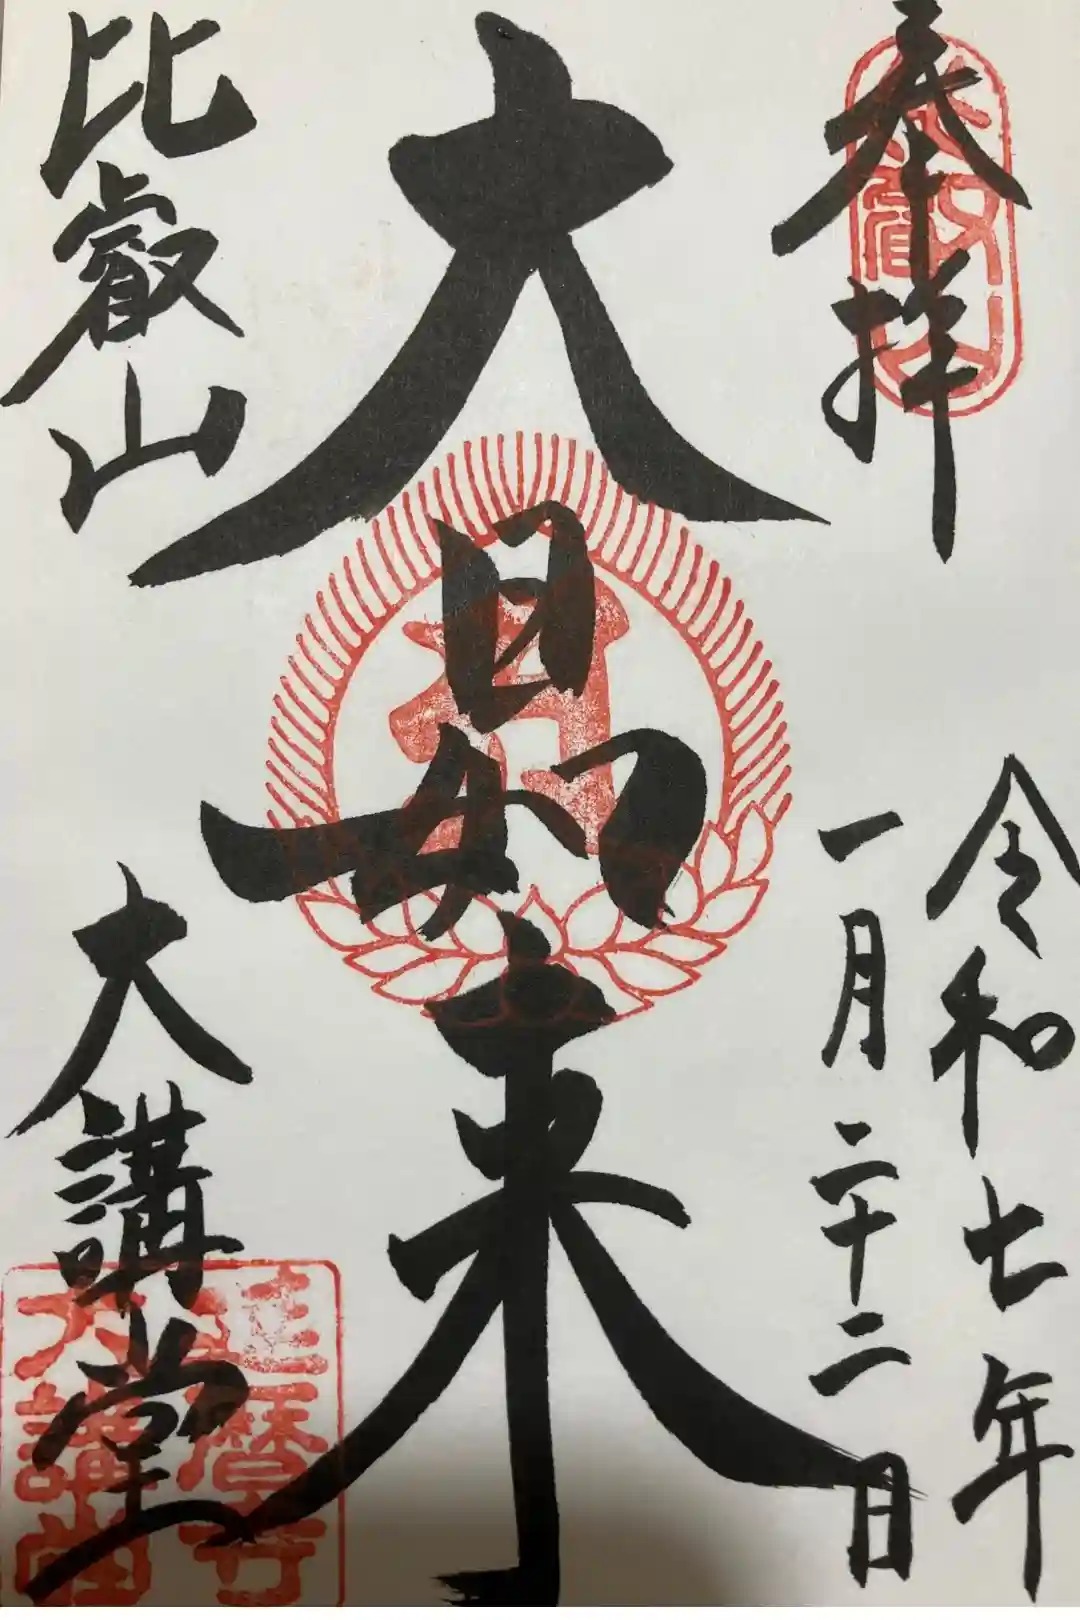 奉拝
比叡山
令和七年
一月二十二日
大日如来
比叡山
大講堂
延暦寺
大講堂